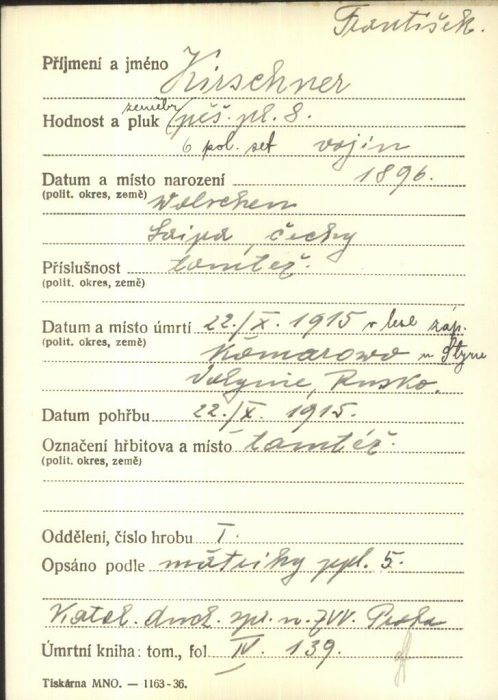 František.
Příjmení a jméno Kirschner
zeměbr.
Hodnost a pluk pěš. pl. 8.
6 pol. set vojín
Datum a místo narození 1896.
(polit. okres, země) Wolschen
Laipa, Čechy
Příslušnost tamtéž.
(polit. okres, země)
Datum a místo úmrtí 22./X. 1915 v lese záp.
(polit. okres, země) Komarowo u Styru
Volynie, Rusko.
Datum pohřbu 22./X. 1915.
Označení hřbitova a místo tamtéž.
(polit. okres, země)
Oddělení, číslo hrobu I.
Opsáno podle matriky ppl. 5.
Katol. duch. spr. n. ZVV. Praha
Úmrtní kniha: tom., fol. IV. 139.
Tiskárna MNO. — 1163-36.